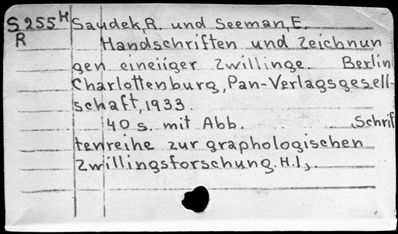 S255H Saudek, R. und Seeman, E.
R Handschriften und Zeichnun
gen eineiiger Zwillinge. Berlin
Charlottenburg, Pan-Verlagsgesell-
schaft, 1933.
40 s. mit Abb. Schrif
tenreihe zur graphologischen
Zwillingsforschung. H. I,.